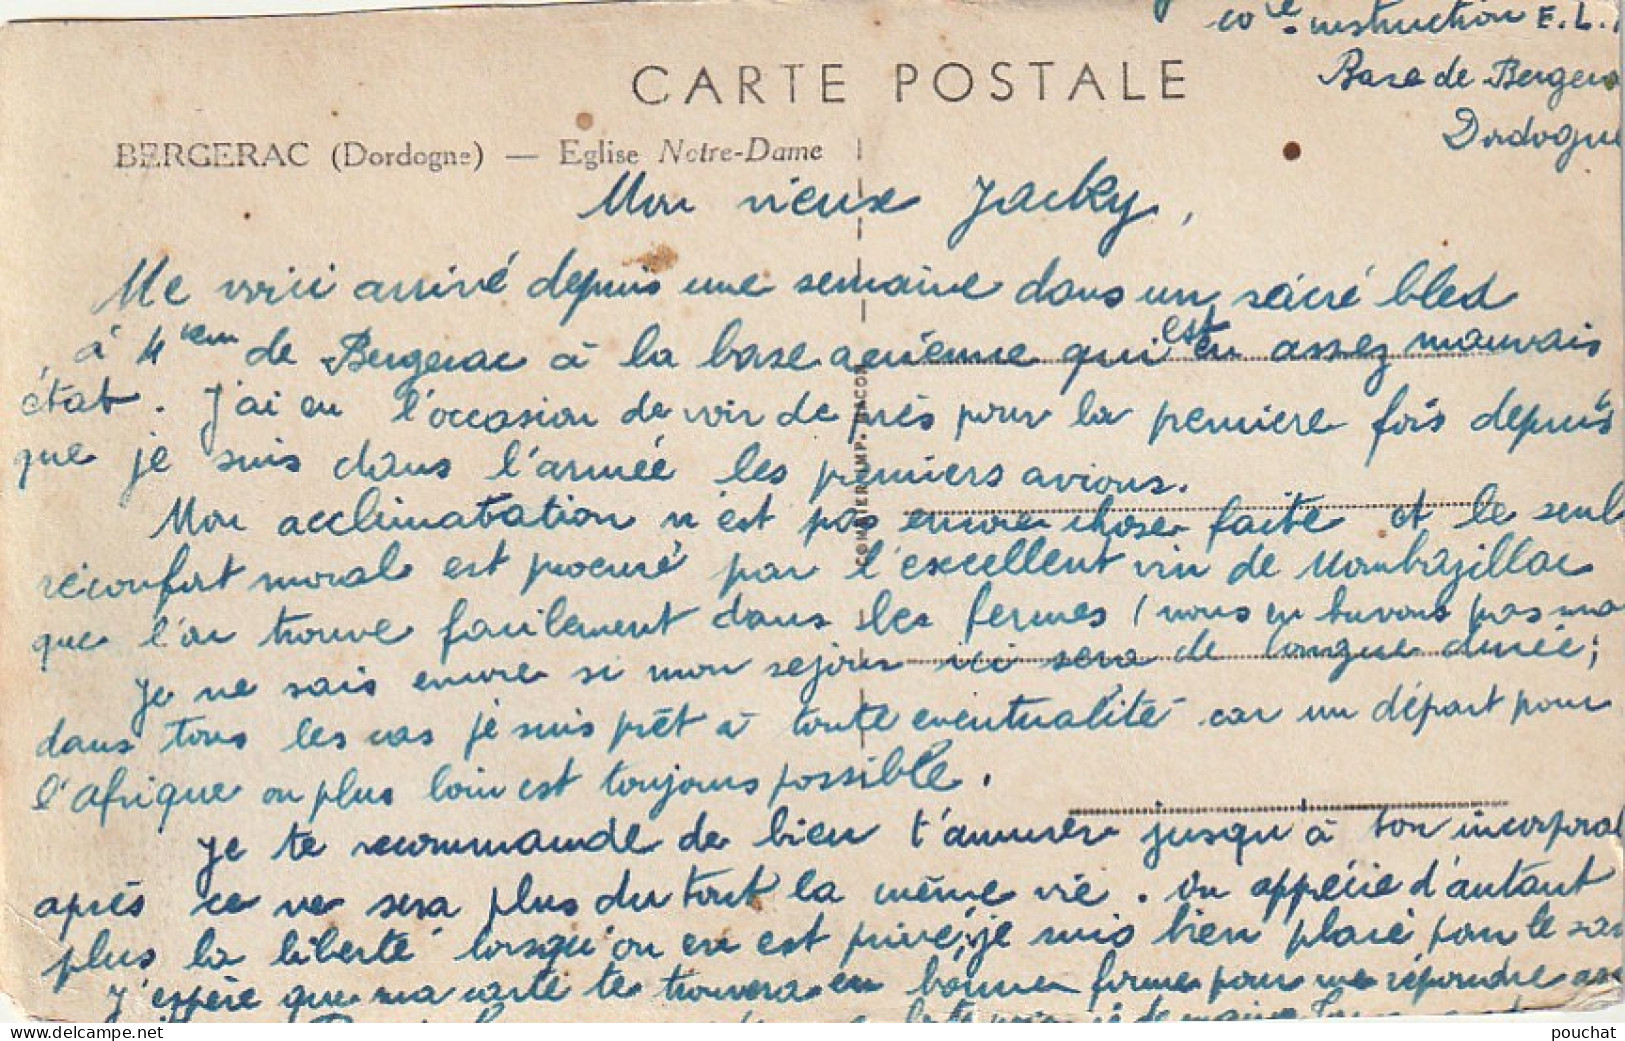 Cie instruction E.L.
Base de Bergera
Dordogne
CARTE POSTALE
BERGERAC (Dordogne) — Eglise Notre-Dame
Mon vieux Jacky,
Me voici arrivé depuis une semaine dans un sacré bled
à 4 km de Bergerac à la base aérienne qui est en assez mauvais
état. J'ai eu l'occasion de voir de près pour la premiere fois depuis
que je suis dans l'armée les premiers avions.
Mon acclimatation n'est pas encore chose faite et le seul
réconfort moral est procuré par l'excellent vin de Monbazillac
que l'on trouve facilement dans les fermes (nous en buvons pas ma
Je ne sais encore si mon sejour ici sera de longue durée;
dans tous les cas je suis prêt à toute eventualité car un départ pour
l'Afrique ou plus loin est toujours possible.
Je te recommande de bien t'amuser jusqu'à ton incorporat
après ce ne sera plus du tout la même vie. On apprécie d'autant
plus la liberté lorsqu'on en est privé, je suis bien placé pour le sav
J'espère que ma carte te trouvera en bonne forme pour me répondre
COMBIER IMP. MACON
pouchat